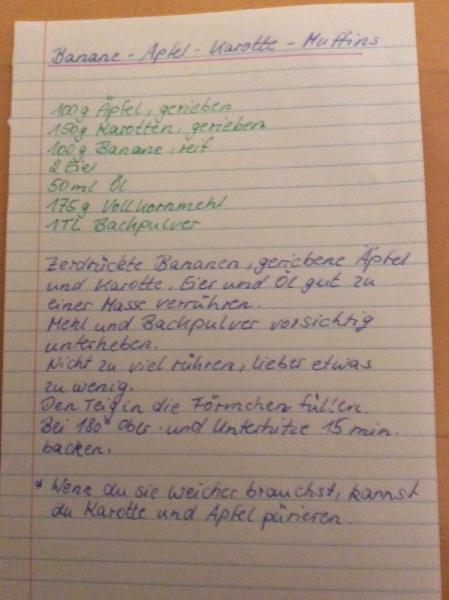 Banane - Apfel - Karotte - Muffins
100g Äpfel, gerieben
150g Karotten, gerieben
100g Banane, reif
2 Eier
50ml Öl
175g Vollkornmehl
1TL Backpulver
Zerdrückte Bananen, geriebene Äpfel
und Karotte, Eier und Öl gut zu
einer Masse verrühren.
Mehl und Backpulver vorsichtig
unterheben.
Nicht zu viel rühren, lieber etwas
zu wenig.
Den Teig in die Förmchen füllen.
Bei 180° Ober- und Unterhitze 15 min.
backen.
* Wenn du sie weicher brauchst, kannst
du Karotte und Apfel pürieren.